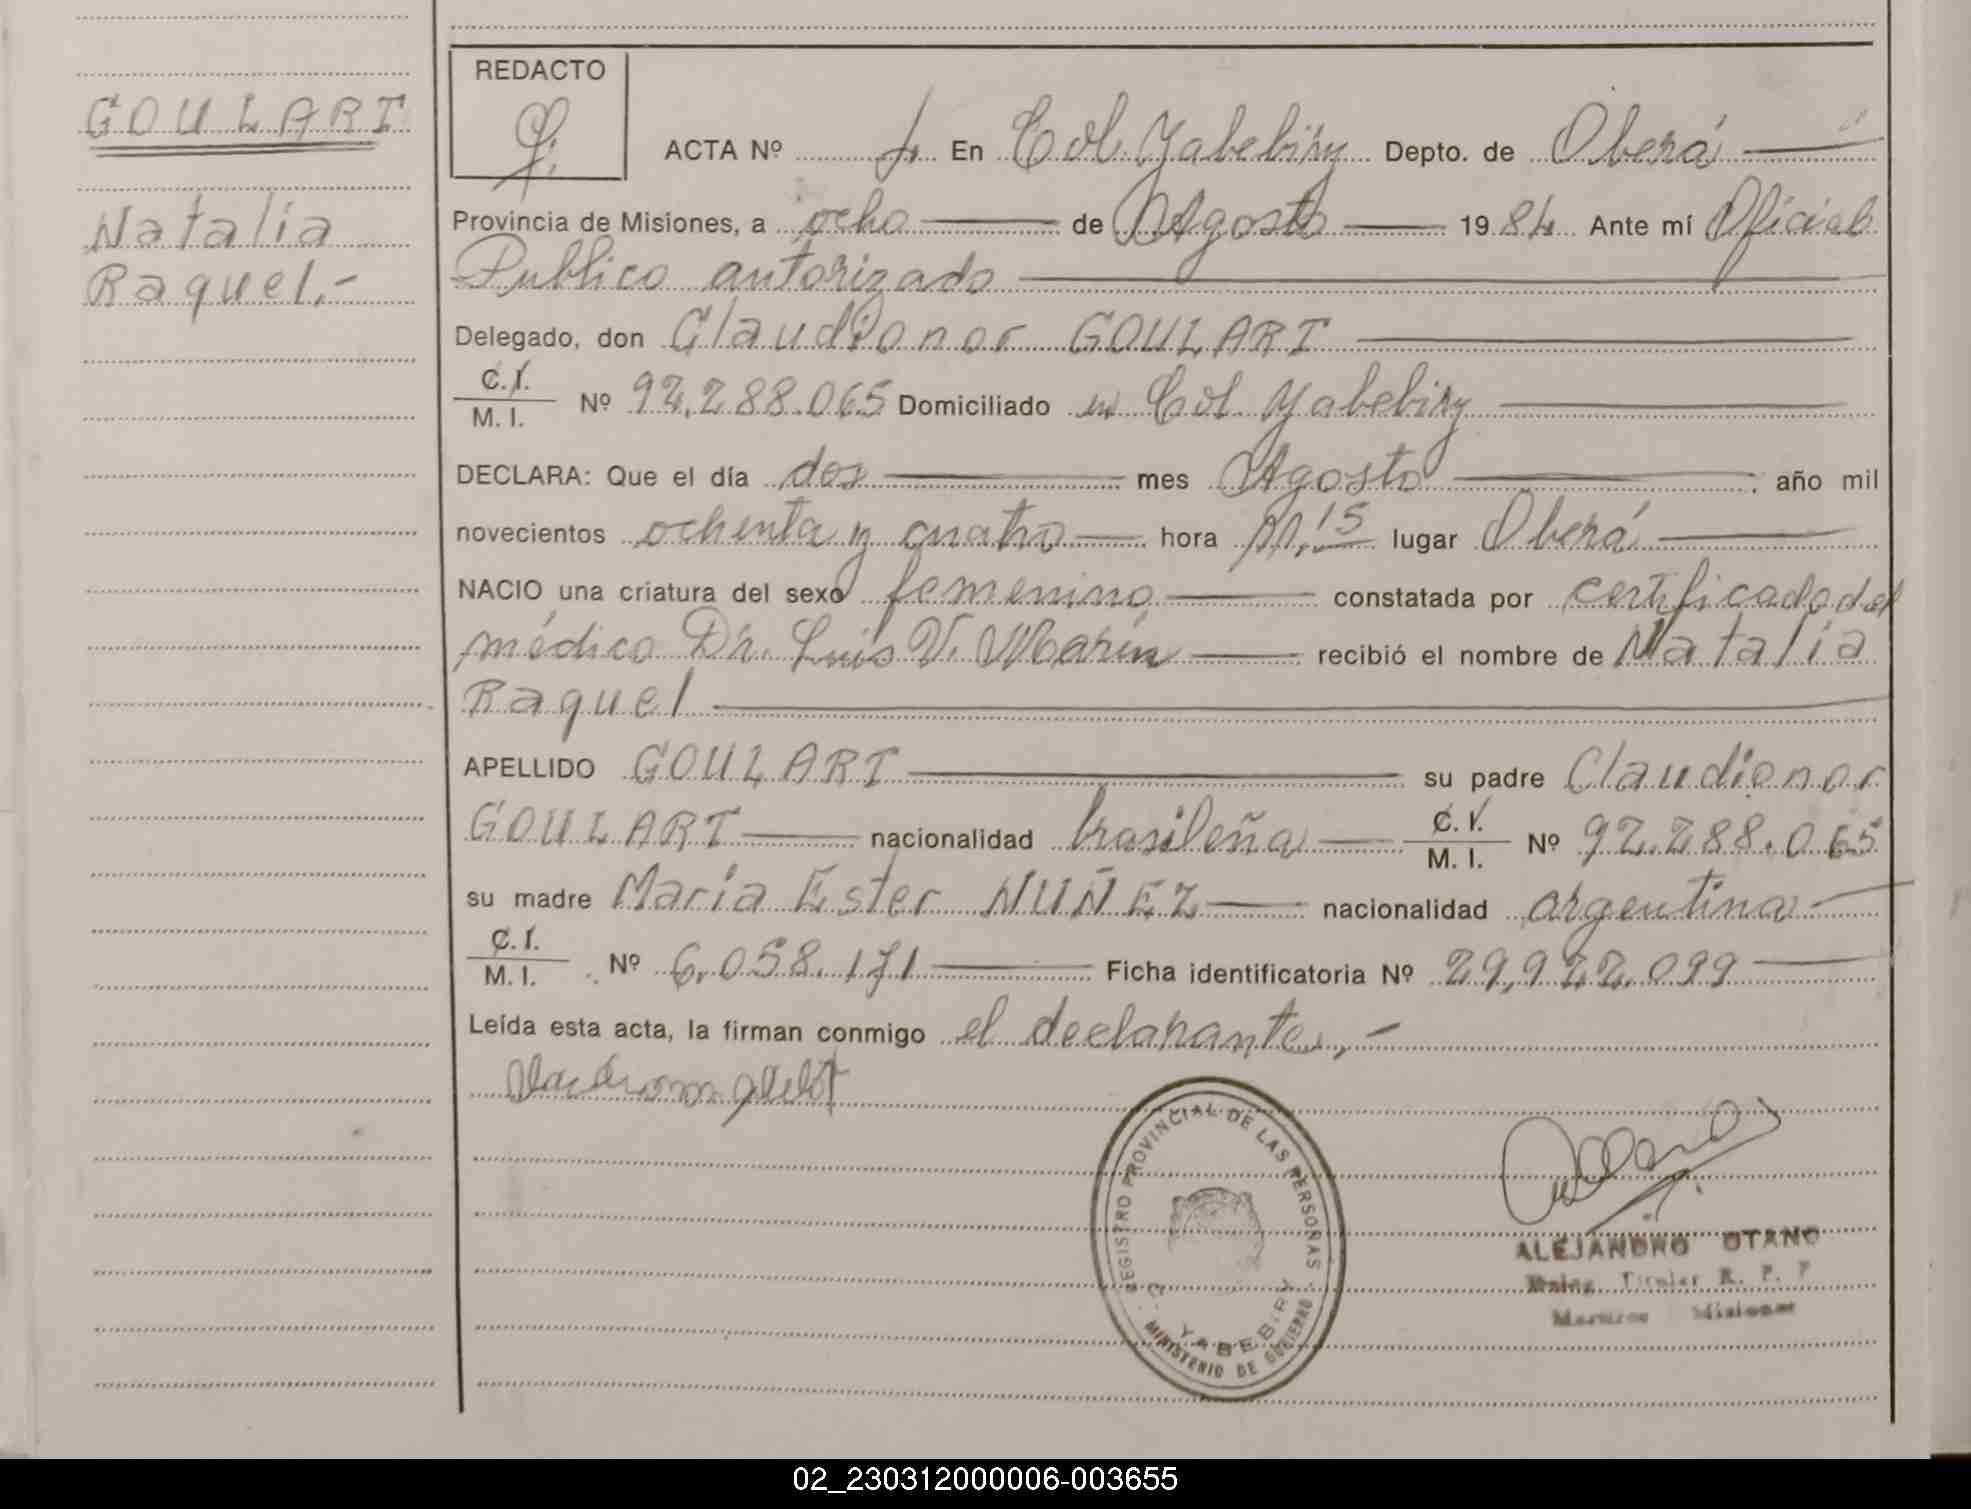 GOULART
Natalia
Raquel.-
REDACTO
ACTA Nº En Col. Yabebiry Depto. de Oberá
Provincia de Misiones, a ocho de Agosto 1984 Ante mí Oficial
Publico autorizado
Delegado, don Claudionor GOULART
C.I.
M. I. Nº 92.288.065 Domiciliado en Col. Yabebiry
DECLARA: Que el día dos mes Agosto , año mil
novecientos ochenta y cuatro hora 11,15 lugar Oberá
NACIO una criatura del sexo femenino constatada por certificado del
médico Dr. Luis V. Marín recibió el nombre de Natalia
Raquel
APELLIDO GOULART su padre Claudionor
GOULART nacionalidad brasileña C.I.
M. I. Nº 92.288.065
su madre María Ester NUÑEZ nacionalidad argentina
C.I.
M. I. Nº 6.058.171 Ficha identificatoria Nº 29,922.099
Leída esta acta, la firman conmigo el declarante,.-
REGISTRO PROVINCIAL DE LAS PERSONAS
YABEBIRY
MINISTERIO DE GOBIERNO
ALEJANDRO OTANO
Titular R. P. P
Misiones
02_230312000006-003655